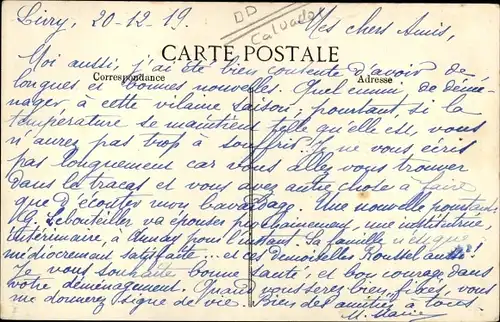 Livry, 20-12-19. Mes chers Amis,
DD
Calvados
CARTE POSTALE
Correspondance Adresse
Moi aussi, j'ai été bien contente d'avoir de
longues et bonnes nouvelles. Quel ennui, de démé-
nager, à cette vilaine saison; pourtant, si la
température se maintient telle qu'elle est, vous
n'aurez pas trop à souffrir! Je ne vous écris
pas longuement car vous allez vous trouver
dans le tracas et vous avez autre chose à faire
que d'écouter mon bavardage. Une nouvelle pourtant:
G. Lebouteiller va épouser prochainement, une institutrice,
intérimaire, à Aunay pour l'instant. Sa famille n'est que
médiocrement satisfaite... et ces Demoiselles Roussel aussi!
Je vous souhaite bonne santé, et bon courage dans
votre déménagement. Quand vous serez bien fixés, vous
me donnerez signe de vie. Bien des amitiés à tous.
M. Marie